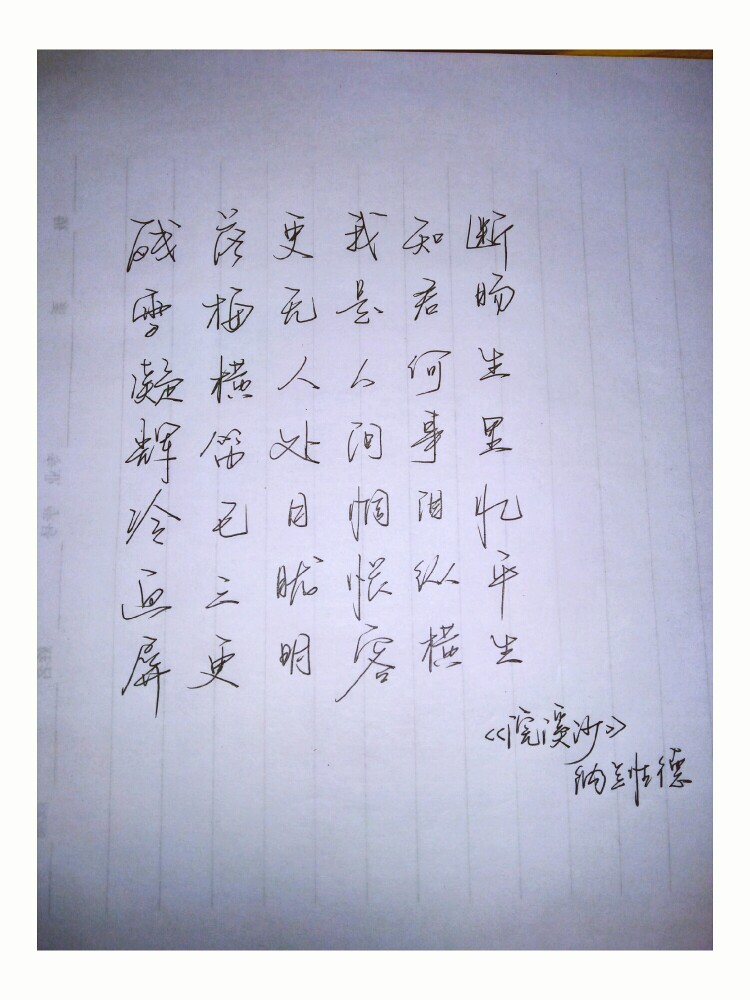 残雪凝辉冷画屏
落梅横笛已三更
更无人处月胧明
我是人间惆怅客
知君何事泪纵横
断肠生里忆平生
《浣溪沙》
纳兰性德